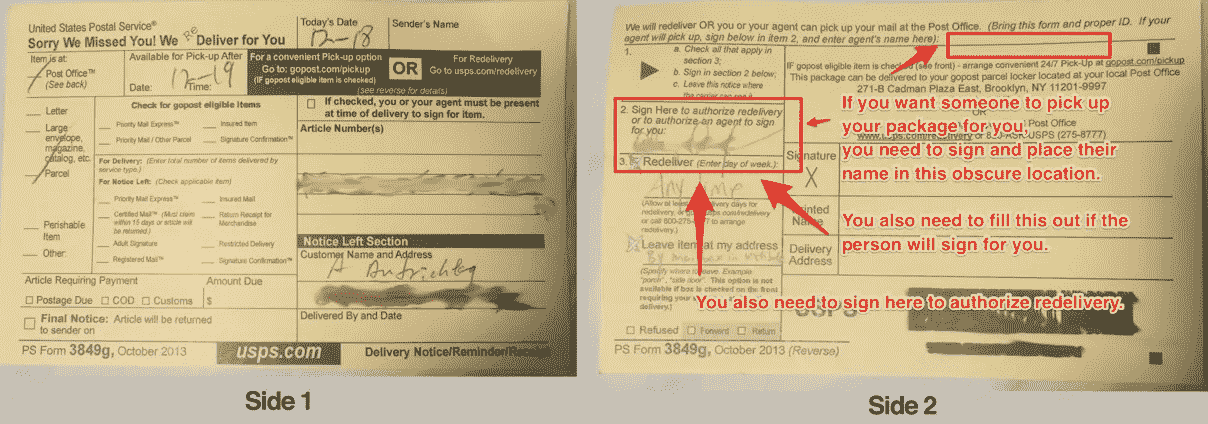 United States Postal Service®
Sorry We Missed You! We Re Deliver for You
Today's Date
12-18
Sender's Name
Item is at:
Post Office™
(See back)
Available for Pick-up After
Date: 12-19 Time:
For a convenient Pick-up option
Go to: gopost.com/pickup
(IF gopost eligible item is checked)
OR
For Redelivery
Go to usps.com/redelivery
(see reverse for details)
Letter
Large
envelope,
magazine,
catalog, etc.
Parcel
Perishable
Item
Other:
Check for gopost eligible Items
Priority Mail Express™
Insured Item
Priority Mail / Other Parcel
Signature Confirmation™
For Delivery: (Enter total number of items delivered by
service type.)
For Notice Left: (Check applicable item)
Priority Mail Express™
Insured Mail
Certified Mail™ (Must claim
within 15 days or article will
be returned.)
Return Receipt for
Merchandise
Adult Signature
Restricted Delivery
Registered Mail™
Signature Confirmation™
If checked, you or your agent must be present
at time of delivery to sign for item.
Article Number(s)
Notice Left Section
Customer Name and Address
A
Article Requiring Payment
Amount Due
Postage Due
COD
Customs
$
Final Notice: Article will be returned
to sender on
Delivered By and Date
PS Form 3849g, October 2013
usps.com
Delivery Notice/Reminder/Receipt
Side 1
We will redeliver OR you or your agent can pick up your mail at the Post Office. (Bring this form and proper ID. If your
agent will pick up, sign below in item 2, and enter agent's name here):
1.
a. Check all that apply in
section 3;
b. Sign in section 2 below;
c. Leave this notice where
the carrier can see it.
IF gopost eligible item is checked (see front) - arrange convenient 24/7 Pick-Up at gopost.com/pickup
This package can be delivered to your gopost parcel locker located at your local Post Office
271-B Cadman Plaza East, Brooklyn, NY 11201-9997
OR
Post Office
(275-8777)
2. Sign Here to authorize redelivery
or to authorize an agent to sign
for you:
3.
Redeliver (Enter day of week.):
Any Time
(Allow at least delivery days for
redelivery, or usps.com/redelivery
or call 800-275-8777 to arrange
redelivery.)
Leave item at my address
(Specify where to leave. Example
"porch", "side door". This option is not
available if box is checked on the front
requiring your
delivery.)
Refused
Forward
Return
Signature
X
Printed
Name
Delivery
Address
USPS
PS Form 3849g, October 2013 (Reverse)
If you want someone to pick up
your package for you,
you need to sign and place their
name in this obscure location.
You also need to fill this out if the
person will sign for you.
You also need to sign here to authorize redelivery.
Side 2